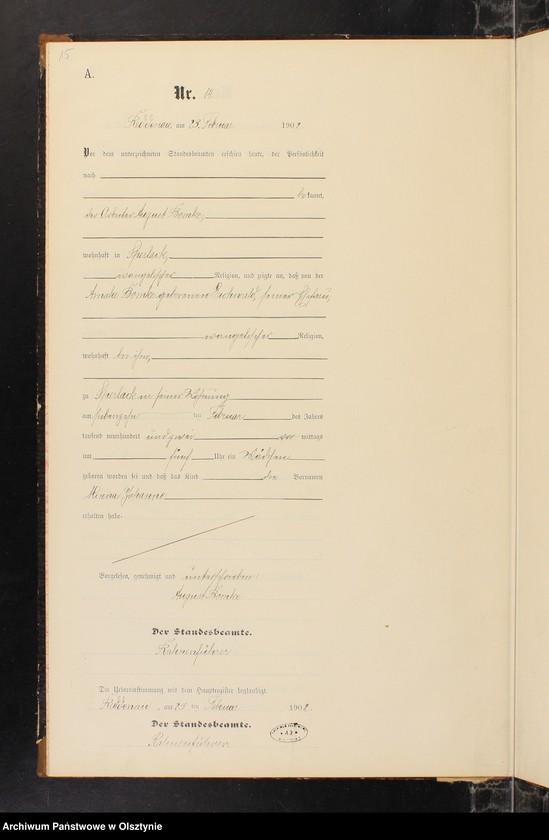 15
A.
Nr.
am 23. Februar 1902
Vor dem unterzeichneten Standesbeamten erschien heute, der Persönlichkeit
nach
bekannt,
der Arbeiter August
wohnhaft in Sperlack,
evangelischer Religion, und zeigte an, daß von der
geborenen seiner Ehefrau,
evangelischer Religion,
wohnhaft bei ihm,
zu Sperlack in seiner Wohnung
am siebenzehn ten Februar des Jahres
tausend neunhundert und zwei vor mittags
um fünf Uhr ein Mädchen
geboren worden sei und daß das Kind die Vornamen
Minna Johanne
erhalten habe.
Vorgelesen, genehmigt und unterschrieben
August
Der Standesbeamte.
Die Uebereinstimmung mit dem Hauptregister beglaubigt.
am 23 ten Februar 1902.
Der Standesbeamte.
Archiwum Państwowe w Olsztynie